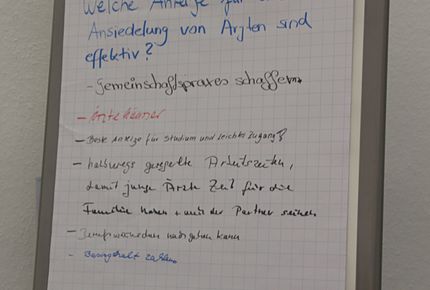 Welche Anreize für
Ansiedelung von Ärzten sind
effektiv?
- Gemeinschaftspraxes schaffen
- Ärztehäuser
- Beste Anreize für Studium und leichte Zugang?
- halbwegs geregelte Arbeitszeiten,
damit junge Ärzte Zeit für die
Familie haben + wo der Partner seinem
- Berufswünschen nachgehen kann
- Basisgehalt zahlen